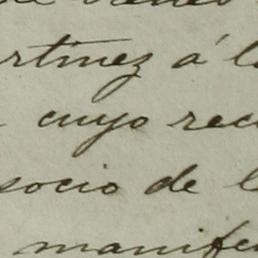 rtinez á l
cuyo rec
socio de l
manife